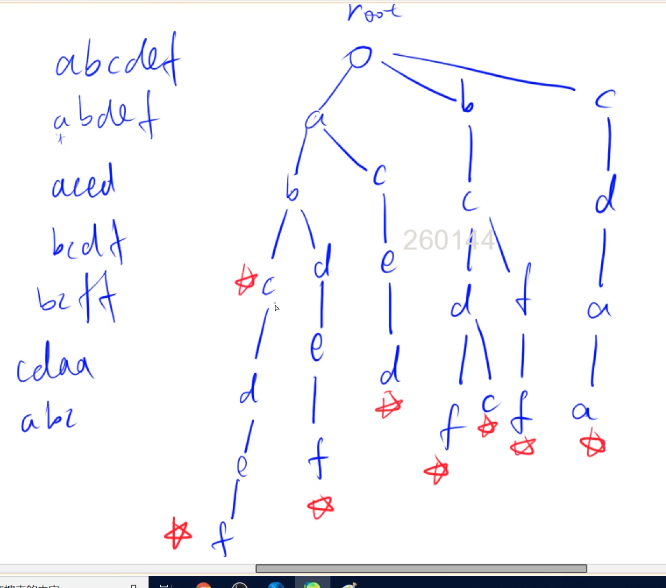 root
abcdef
abdef
aced
bcdf
bcff
cdaa
abc
a
b
c
b
c
c
d
c
d
e
d
f
a
d
e
d
f
c
f
a
e
f
f
260144